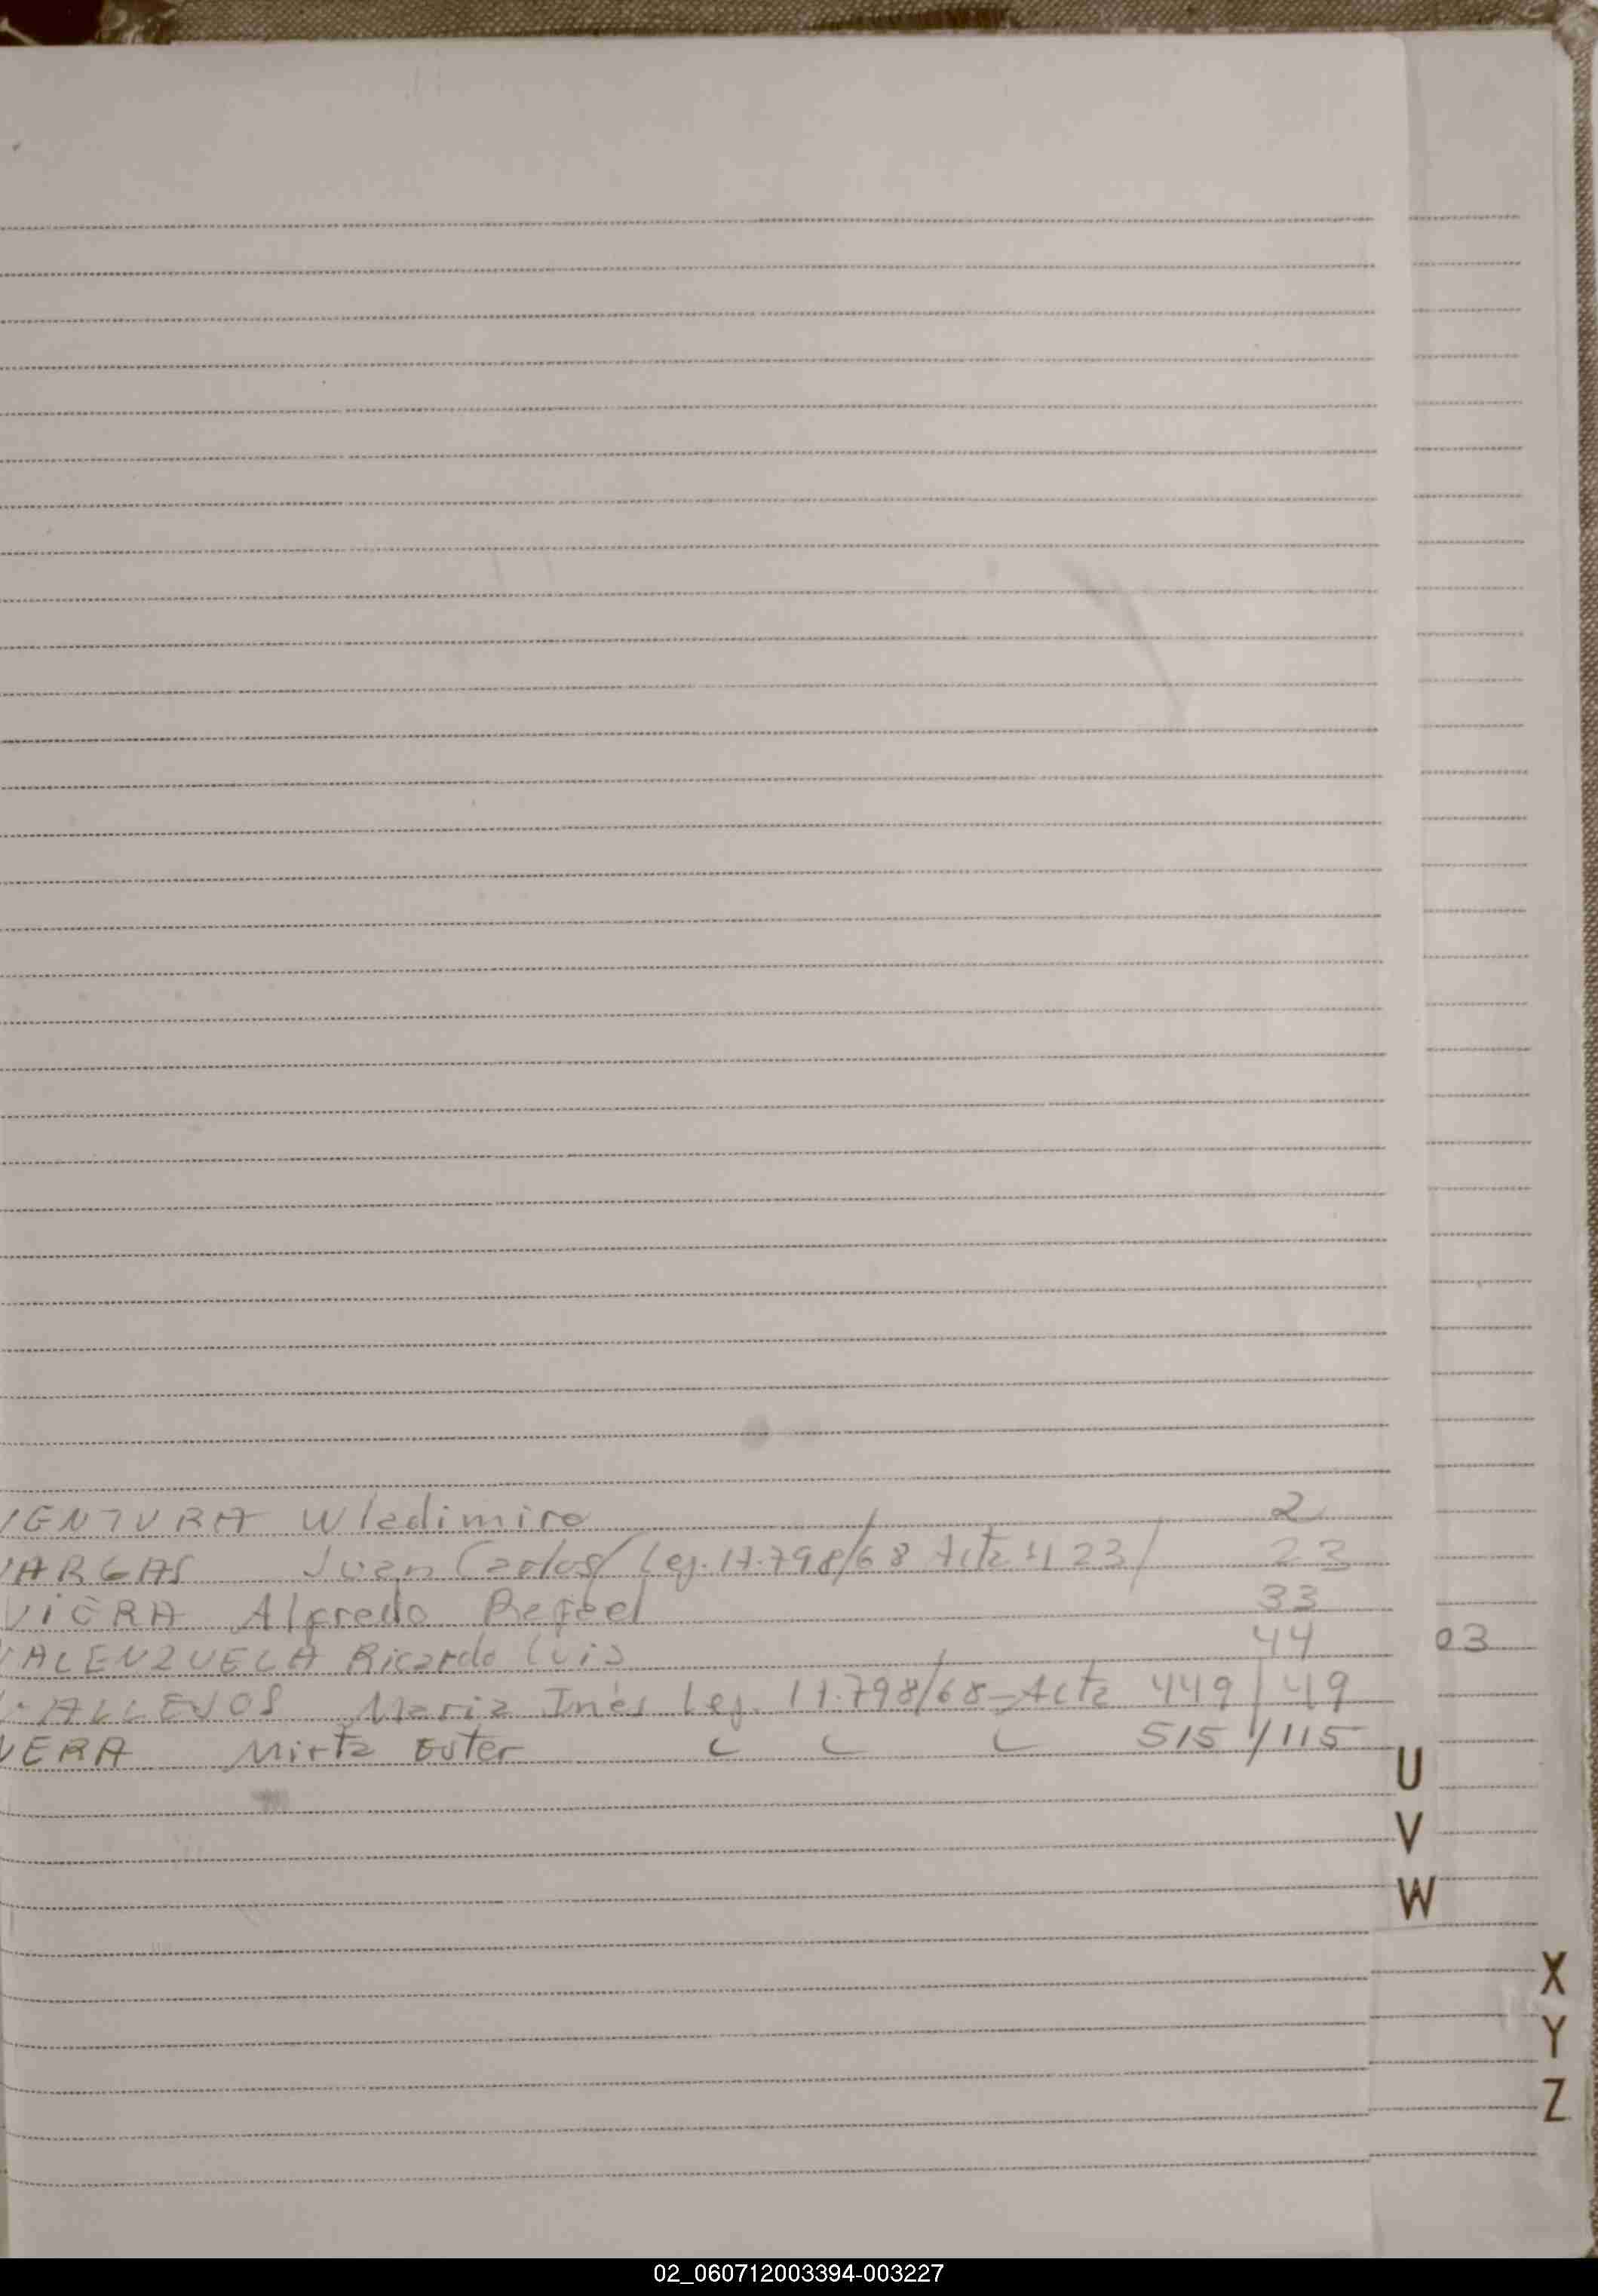 VENTURA Wladimiro 2
VARGAS Juan Carlos/Leg. 17.798/68 Acta 423/ 23
VIERA Alfredo Rafael 33
VALENZUELA Ricardo Luis 44 03
VALLEJOS Maria Inés Leg. 17.798/68-Acta 449/49
VERA Mirta Ester 515/115
U
V
W
X
Y
Z
02_060712003394-003227